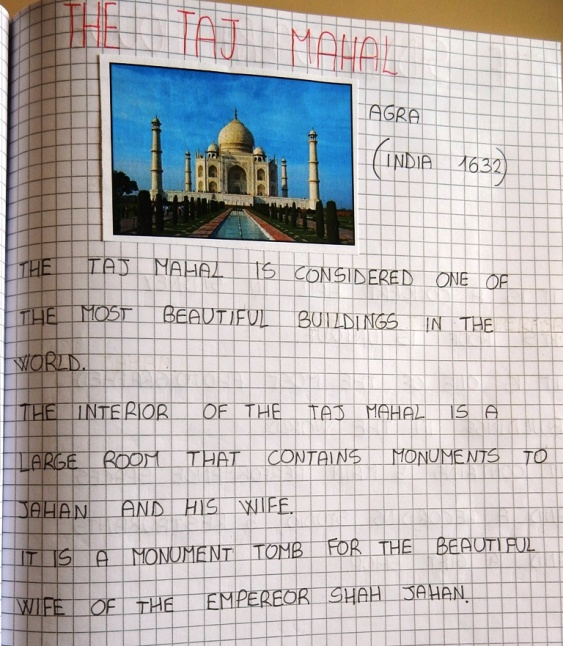 THE TAJ MAHAL
AGRA
(INDIA 1632)
THE TAJ MAHAL IS CONSIDERED ONE OF
THE MOST BEAUTIFUL BUILDINGS IN THE
WORLD.
THE INTERIOR OF THE TAJ MAHAL IS A
LARGE ROOM THAT CONTAINS MONUMENTS TO
JAHAN AND HIS WIFE.
IT IS A MONUMENT TOMB FOR THE BEAUTIFUL
WIFE OF THE EMPEREOR SHAH JAHAN.